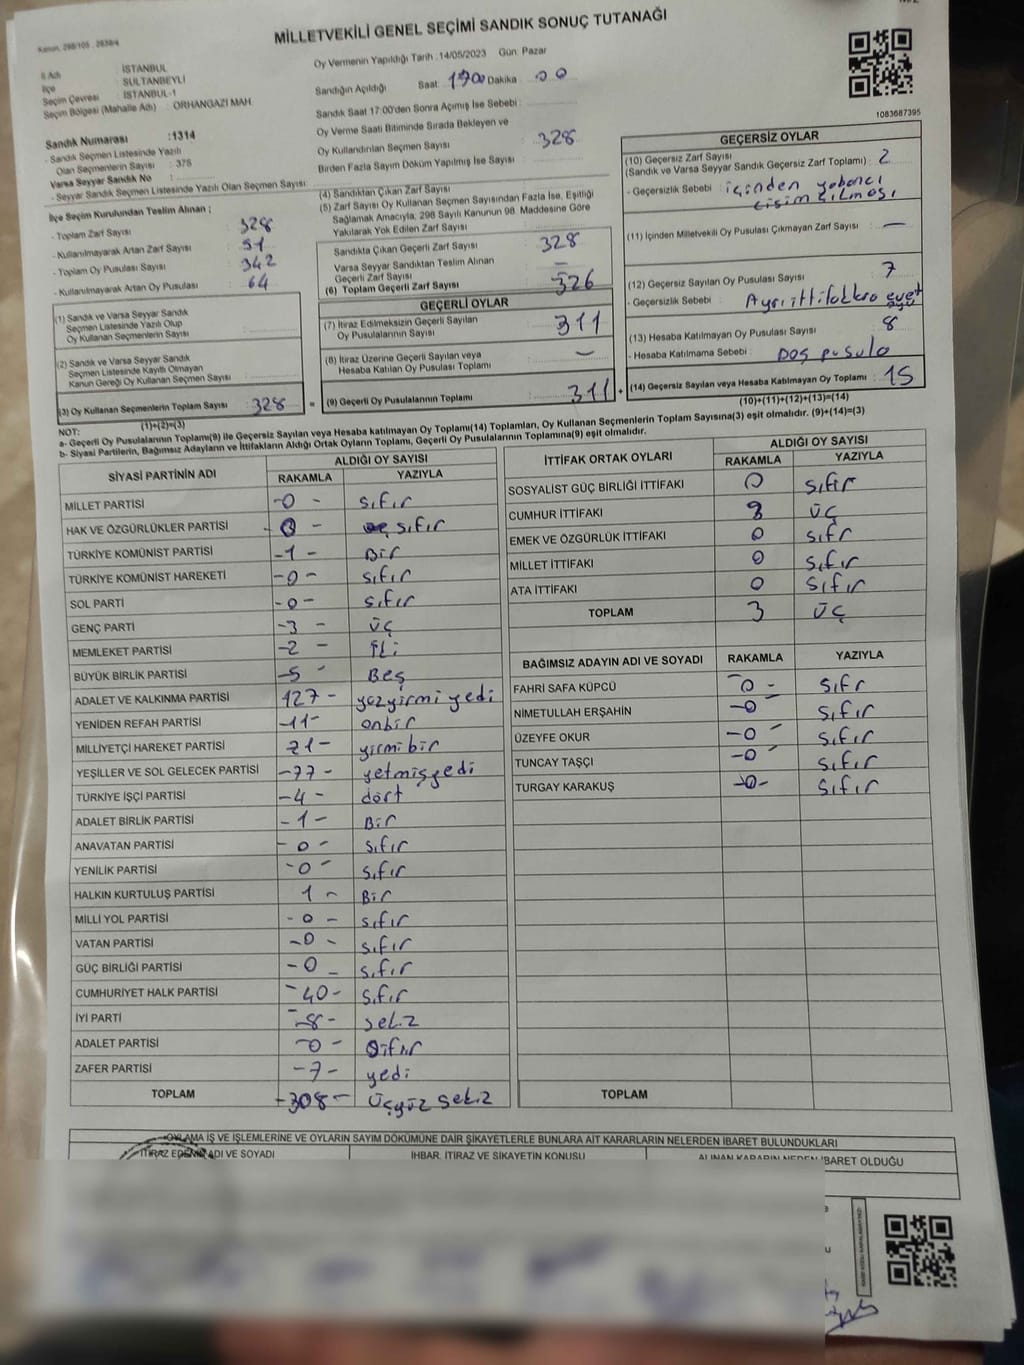 MİLLETVEKİLİ GENEL SEÇİMİ SANDIK SONUÇ TUTANAĞI
Kanun, 298/105 , 2839/4
İl Adı : İSTANBUL
İlçe : SULTANBEYLİ
Seçim Çevresi : İSTANBUL-1
Seçim Bölgesi (Mahalle Adı) : ORHANGAZI MAH.
Oy Vermenin Yapıldığı Tarih : 14/05/2023 Gün: Pazar
Sandığın Açıldığı Saat 1700 Dakika : 00
Sandık Saat 17:00'den Sonra Açımış İse Sebebi :
Oy Verme Saati Bitiminde Sırada Bekleyen ve
Oy Kullandırılan Seçmen Sayısı : 328
Birden Fazla Sayım Döküm Yapılmış İse Sayısı :
1083687395
Sandık Numarası :1314
- Sandık Seçmen Listesinde Yazılı
Olan Seçmenlerin Sayısı : 375
Varsa Seyyar Sandık No :
- Seyyar Sandık Seçmen Listesinde Yazılı Olan Seçmen Sayısı :
İlçe Seçim Kurulundan Teslim Alınan ;
- Toplam Zarf Sayısı : 328
- Kullanılmayarak Artan Zarf Sayısı : 51
- Toplam Oy Pusulası Sayısı : 342
- Kullanılmayarak Artan Oy Pusulası : 64
(1) Sandık ve Varsa Seyyar Sandık
Seçmen Listesinde Yazılı Olup
Oy Kullanan Seçmenlerin Sayısı :
(2) Sandık ve Varsa Seyyar Sandık
Seçmen Listesinde Kayıtlı Olmayan
Kanun Gereği Oy Kullanan Seçmen Sayısı :
(3) Oy Kullanan Seçmenlerin Toplam Sayısı : 328
(1)+(2)=(3)
(4) Sandıktan Çıkan Zarf Sayısı
(5) Zarf Sayısı Oy Kullanan Seçmen Sayısından Fazla İse, Eşitliği
Sağlamak Amacıyla, 298 Sayılı Kanunun 98. Maddesine Göre
Yakılarak Yok Edilen Zarf Sayısı :
Sandıkta Çıkan Geçerli Zarf Sayısı : 328
Varsa Seyyar Sandıktan Teslim Alınan
Geçerli Zarf Sayısı : –
(6) Toplam Geçerli Zarf Sayısı : 326
GEÇERLİ OYLAR
(7) İtiraz Edilmeksizin Geçerli Sayılan
Oy Pusulalarının Sayısı : 311
(8) İtiraz Üzerine Geçerli Sayılan veya
Hesaba Katılan Oy Pusulası Toplamı : –
= (9) Geçerli Oy Pusulalarının Toplamı : 311 +
GEÇERSİZ OYLAR
(10) Geçersiz Zarf Sayısı
(Sandık ve Varsa Seyyar Sandık Geçersiz Zarf Toplamı) : 2
- Geçersizlik Sebebi : içinden yabancı
cisim çıkması
(11) İçinden Milletvekili Oy Pusulası Çıkmayan Zarf Sayısı : –
(12) Geçersiz Sayılan Oy Pusulası Sayısı : 7
- Geçersizlik Sebebi : Ayrı ittifaklara evet
(13) Hesaba Katılmayan Oy Pusulası Sayısı : 8
- Hesaba Katılmama Sebebi : Boş pusula
(14) Geçersiz Sayılan veya Hesaba Katılmayan Oy Toplamı : 15
(10)+(11)+(12)+(13)=(14)
NOT:
a- Geçerli Oy Pusulalarının Toplamı(9) ile Geçersiz Sayılan veya Hesaba katılmayan Oy Toplamı(14) Toplamları, Oy Kullanan Seçmenlerin Toplam Sayısına(3) eşit olmalıdır. (9)+(14)=(3)
b- Siyasi Partilerin, Bağımsız Adayların ve İttifakların Aldığı Ortak Oyların Toplamı, Geçerli Oy Pusulalarının Toplamına(9) eşit olmalıdır.
SİYASİ PARTİNİN ADI ALDIĞI OY SAYISI
RAKAMLA YAZIYLA
MİLLET PARTİSİ -0- sıfır
HAK VE ÖZGÜRLÜKLER PARTİSİ -0- sıfır
TÜRKİYE KOMÜNİST PARTİSİ -1- Bir
TÜRKİYE KOMÜNİST HAREKETİ -0- sıfır
SOL PARTİ -0- sıfır
GENÇ PARTİ -3- üç
MEMLEKET PARTİSİ -2- iki
BÜYÜK BİRLİK PARTİSİ -5- Beş
ADALET VE KALKINMA PARTİSİ 127- yüzyirmi yedi
YENİDEN REFAH PARTİSİ -11- onbir
MİLLİYETÇİ HAREKET PARTİSİ 21- yirmi bir
YEŞİLLER VE SOL GELECEK PARTİSİ -77- yetmişyedi
TÜRKİYE İŞÇİ PARTİSİ -4- dört
ADALET BİRLİK PARTİSİ -1- Bir
ANAVATAN PARTİSİ -0- sıfır
YENİLİK PARTİSİ -0- sıfır
HALKIN KURTULUŞ PARTİSİ 1- Bir
MİLLİ YOL PARTİSİ -0- sıfır
VATAN PARTİSİ -0- sıfır
GÜÇ BİRLİĞİ PARTİSİ -0- sıfır
CUMHURİYET HALK PARTİSİ -40- sıfır
İYİ PARTİ -8- sekiz
ADALET PARTİSİ -0- sıfır
ZAFER PARTİSİ -7- yedi
TOPLAM -308- üçyüz sekiz
İTTİFAK ORTAK OYLARI ALDIĞI OY SAYISI
RAKAMLA YAZIYLA
SOSYALİST GÜÇ BİRLİĞİ İTTİFAKI 0 sıfır
CUMHUR İTTİFAKI 3 üç
EMEK VE ÖZGÜRLÜK İTTİFAKI 0 sıfr
MİLLET İTTİFAKI 0 sıfır
ATA İTTİFAKI 0 sıfır
TOPLAM 3 üç
BAĞIMSIZ ADAYIN ADI VE SOYADI RAKAMLA YAZIYLA
FAHRİ SAFA KÜPCÜ -0- sıfr
NİMETULLAH ERŞAHİN -0- sıfır
ÜZEYFE OKUR -0- sıfır
TUNCAY TAŞÇI -0- sıfır
TURGAY KARAKUŞ -0- sıfır
TOPLAM
OYLAMA İŞ VE İŞLEMLERİNE VE OYLARIN SAYIM DÖKÜMÜNE DAİR ŞİKAYETLERLE BUNLARA AİT KARARLARIN NELERDEN İBARET BULUNDUKLARI
İTİRAZ EDENİN ADI VE SOYADI İHBAR, İTİRAZ VE ŞİKAYETİN KONUSU ALINAN KARARIN NEDEN İBARET OLDUĞU